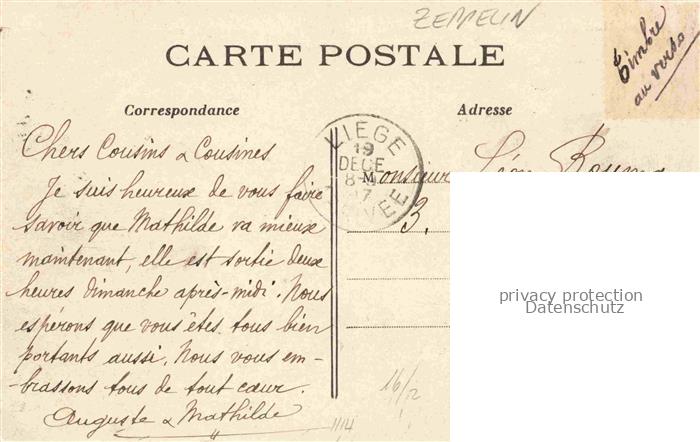 ZEPPELIN
CARTE POSTALE
Timbre
au verso
Correspondance
Adresse
LIEGE
19
DECE
8-
7
VEE
Chers Cousins & Cousines
Je suis heureux de vous faire
savoir que Mathilde va mieux
maintenant, elle est sortie deux
heures dimanche après-midi. Nous
espérons que vous êtes tous bien
portants aussi. Nous vous em-
-brassons tous de tout cœur.
Auguste & Mathilde
Monsieur Léon
3.
privacy protection
Datenschutz
16/12
1114